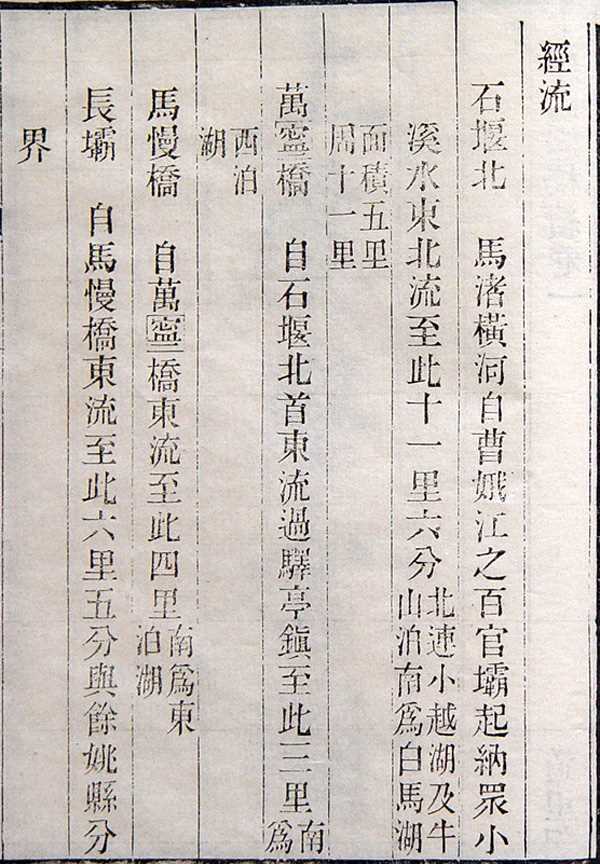 經流
石堰北　馬渚橫河自曹娥江之百官壩起納眾小
溪水東北流至此十一里六分
北連小越湖及牛
山泊南爲白馬湖
面積五里
周十一里
萬寍橋　自石堰北首東流過驛亭鎮至此三里
南
爲
西泊
湖
馬慢橋　自萬寍橋東流至此四里
南爲東
泊湖
長壩　自馬慢橋東流至此六里五分與餘姚縣分
界